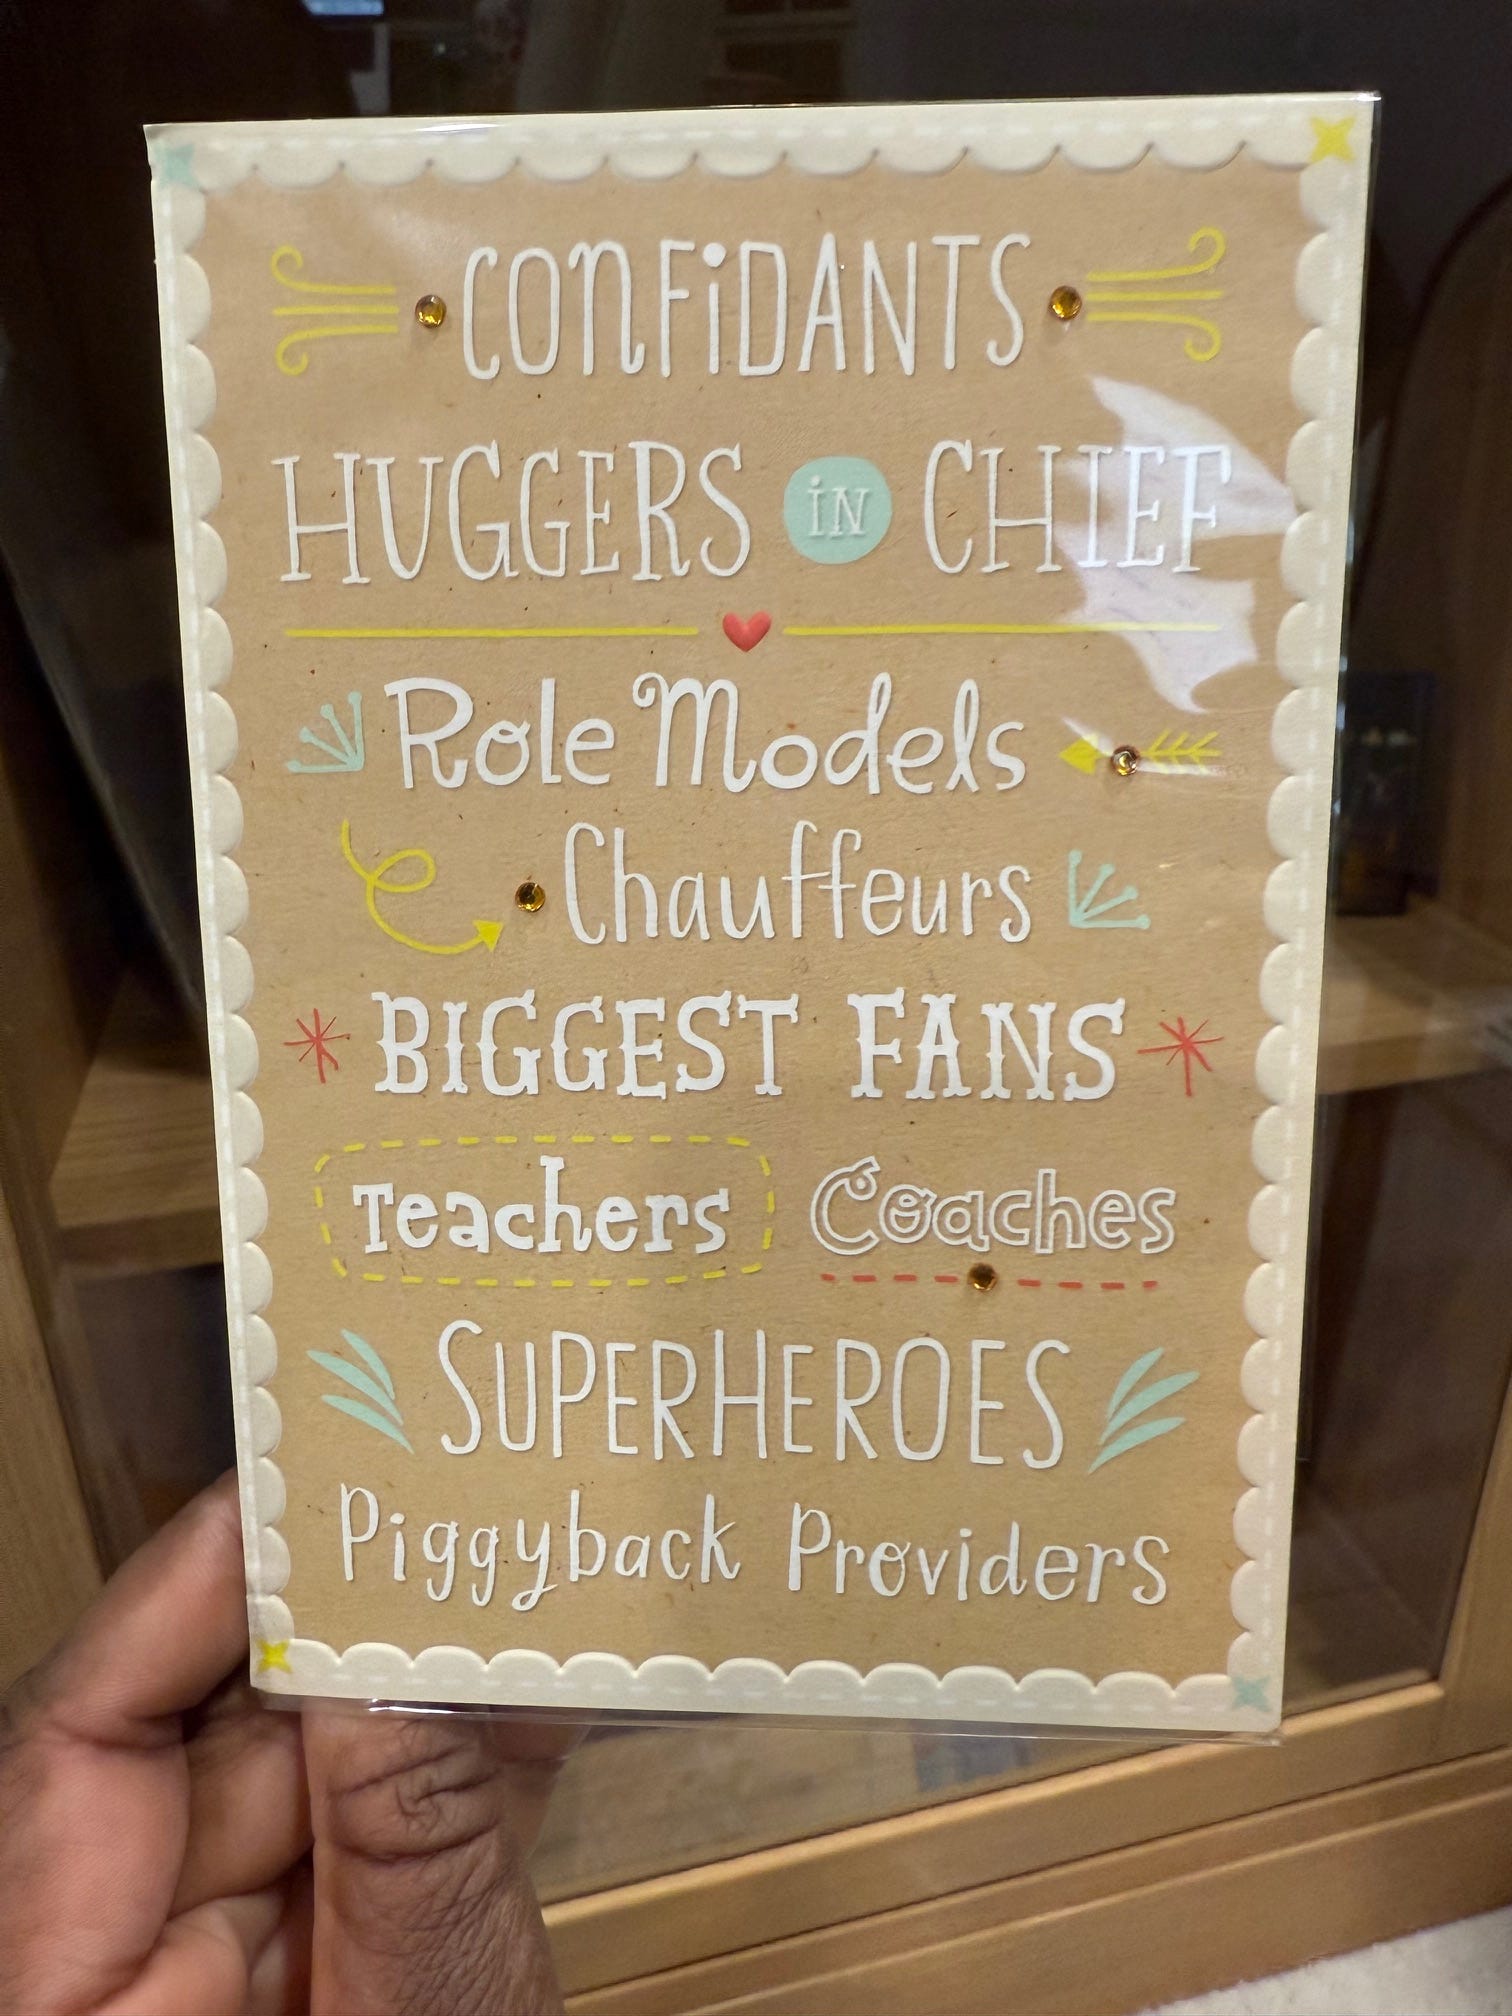 CONFiDANTS
HUGGERS iN CHIEF
Role Models
Chauffeurs
BIGGEST FANS
Teachers Coaches
SUPERHEROES
Piggyback Providers